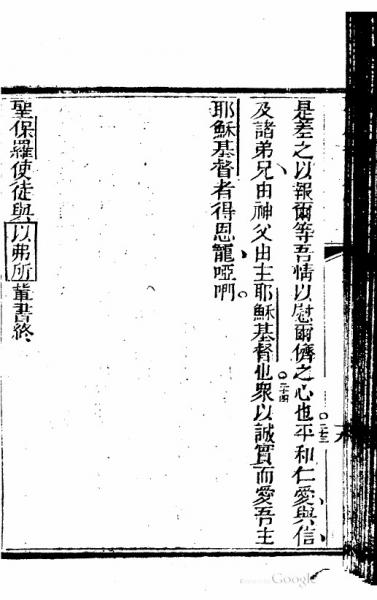 是差之以報爾等吾情以慰爾儕之心也。二十三平和仁愛、與信、
及諸弟兄由神父由主耶穌基督也。二十四衆以誠實而愛吾主
耶穌基督者、得恩寵、啞吶。
聖保羅使徒與以弗所輩書終
Google